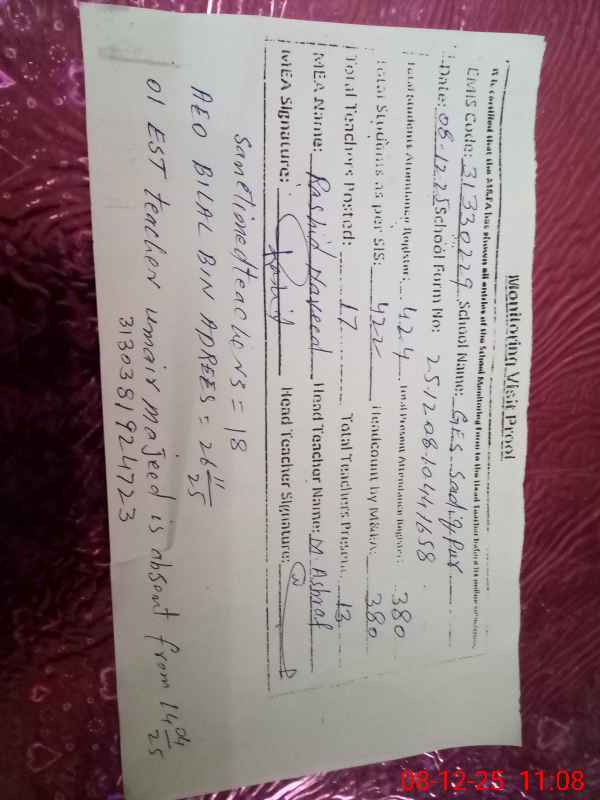 Monitoring Visit Proof
It is certified that the M&EA has shown all entries of the School Monitoring Form to the Head Teacher before
EMIS Code: 31330229 School Name: GES Sadiq Pur
Date: 08-12-25 School Form No: 2512081041658
Total Students Attendance Register: 424 Total Present Attendance Register: 380
Total Students as per SIS: 422 Headcount by M&EA: 380
Total Teachers Posted: 17 Total Teachers Present: 13
MEA Name: Rashid Naveed Head Teacher Name: M Ashraf
MEA Signature: Rashid Head Teacher Signature:
Sanctionedteachers = 18
AEO BILAL BIN ADREES = 26 11/25
01 EST teacher umair majeed is absent from 14 04/25
3130381924723
08-12-25 11:08